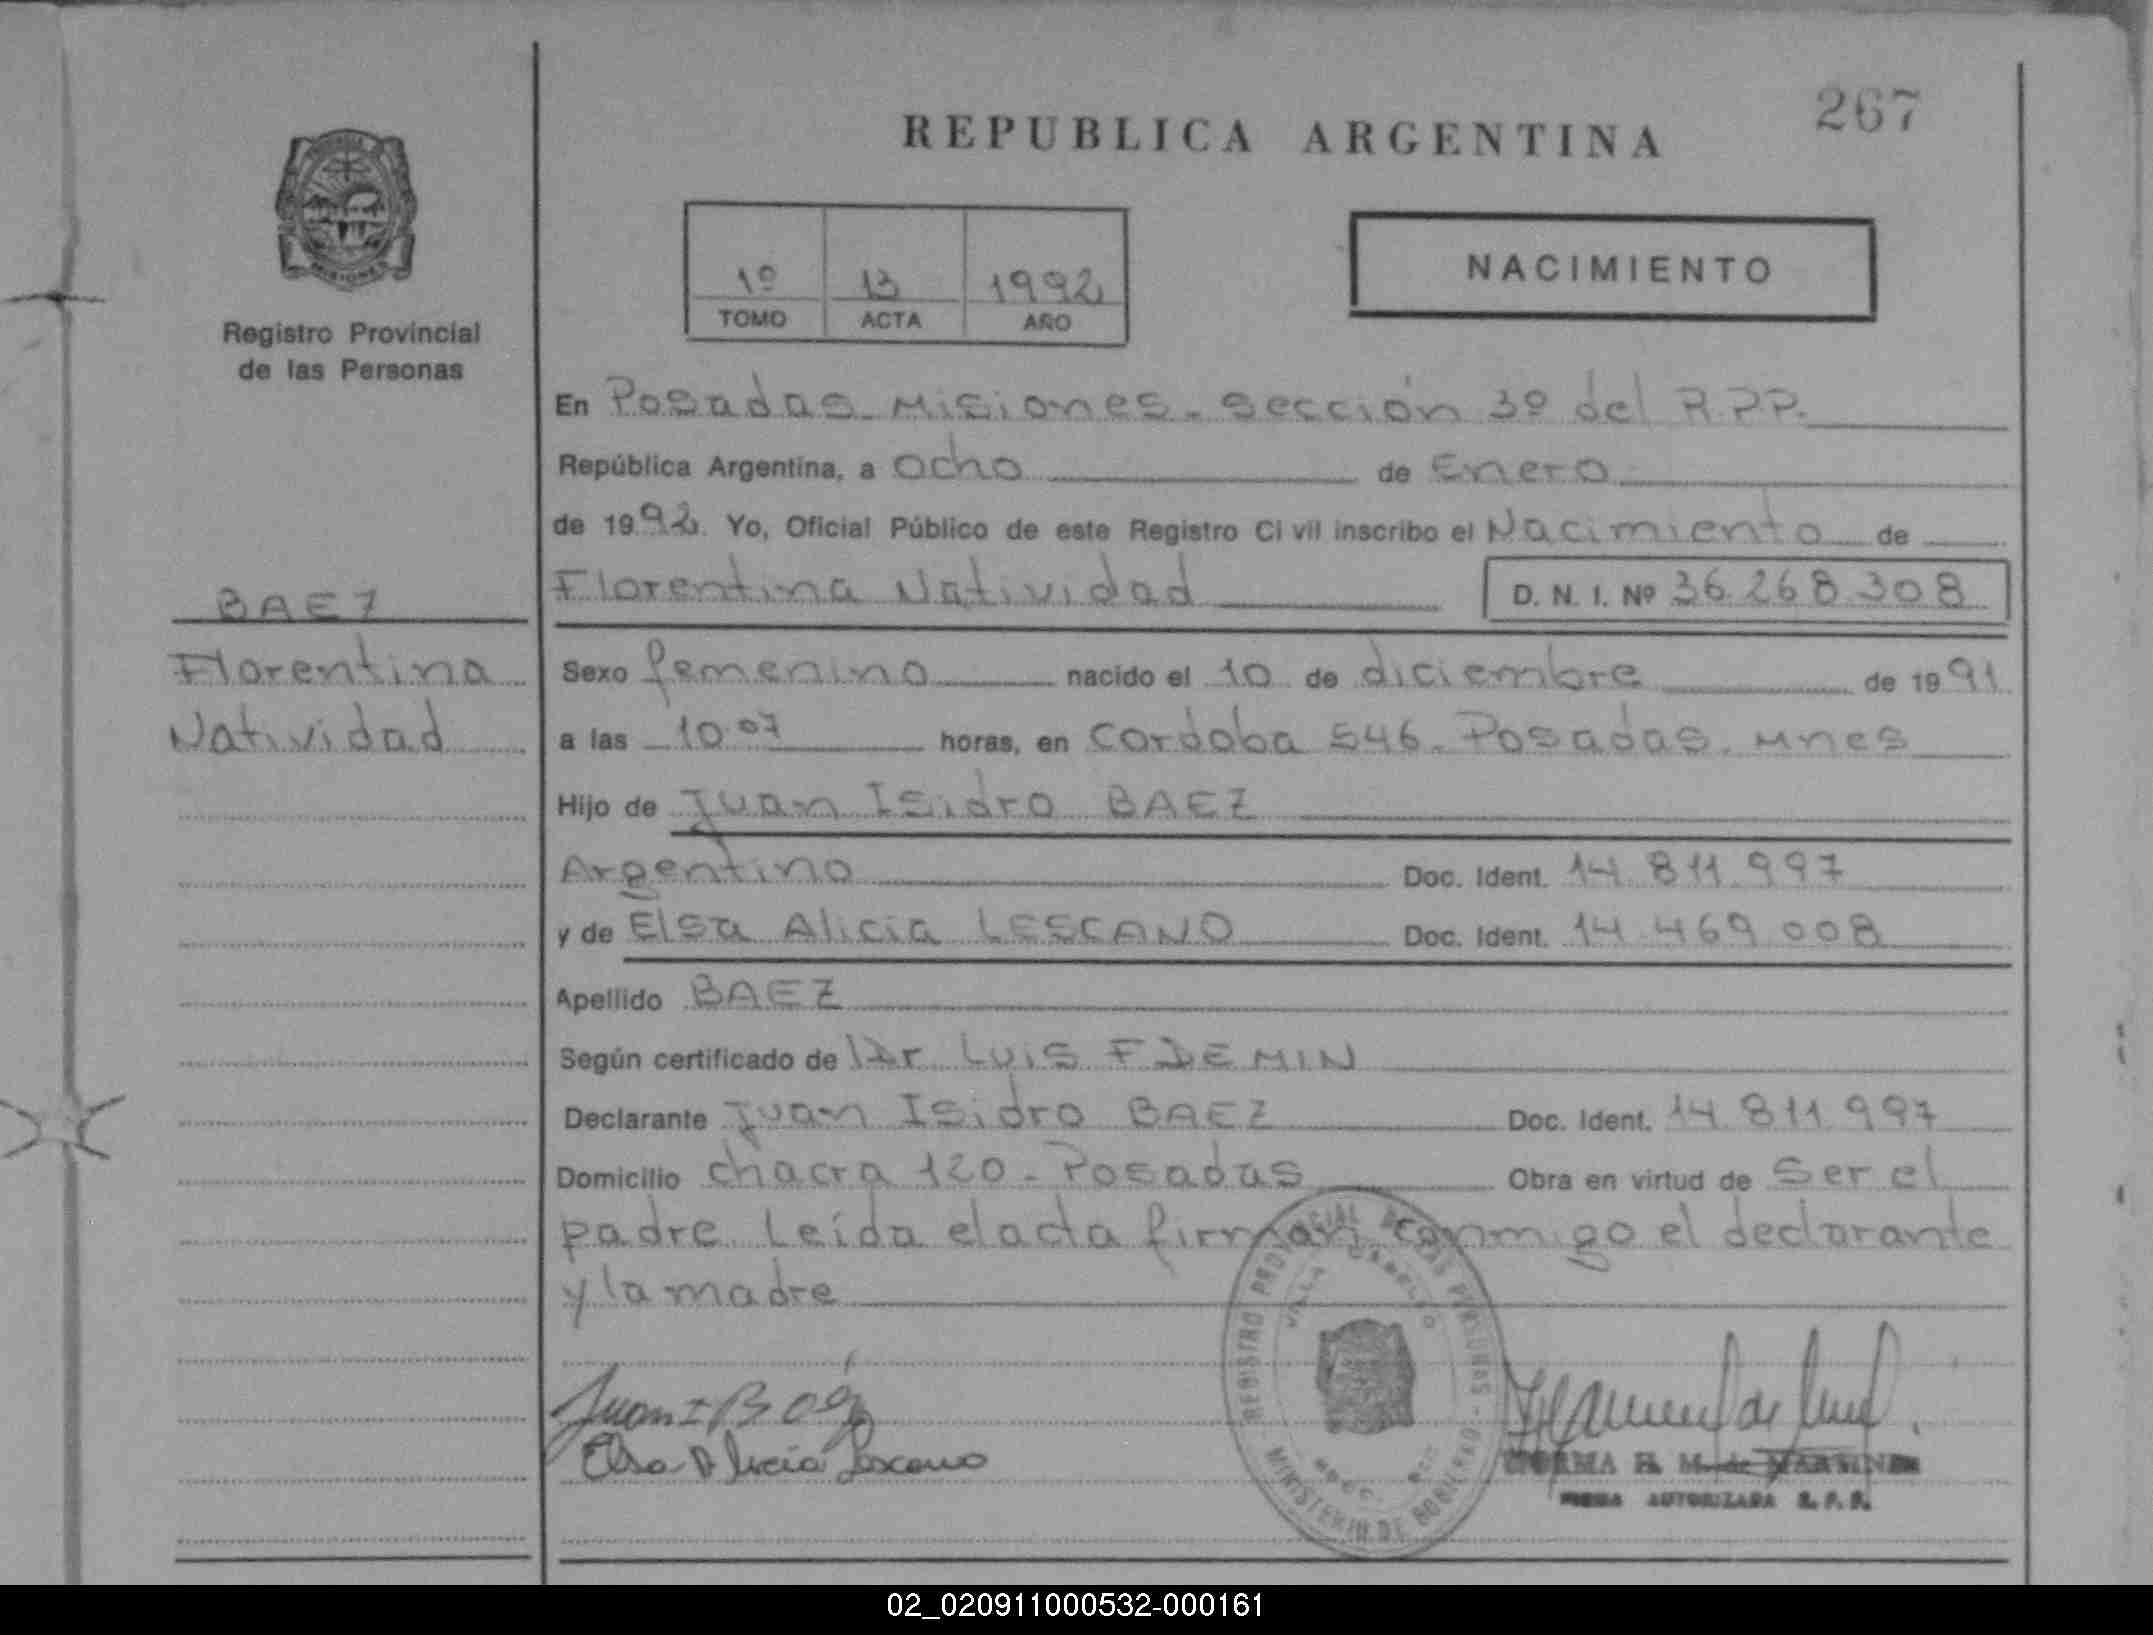 267
REPUBLICA ARGENTINA
MISIONES
Registro Provincial
de las Personas
1º 13 1992
TOMO ACTA AÑO
NACIMIENTO
En Posadas. Misiones. Sección 3º del R.P.P.
República Argentina, a ocho de Enero
de 1992. Yo, Oficial Público de este Registro Ci vil inscribo el Nacimiento de
Florentina Natividad D. N. I. Nº 36.268.308
BAEZ
Florentina
Natividad
Sexo femenino nacido el 10 de diciembre de 1991
a las 10.07 horas, en Cordoba 546. Posadas. Mnes
Hijo de Juan Isidro BAEZ
Argentino Doc. Ident. 14.811.997
y de Elsa Alicia LESCANO Doc. Ident. 14.469.008
Apellido BAEZ
Según certificado de Dr. Luis F DEMIN
Declarante Juan Isidro BAEZ Doc. Ident. 14.811.997
Domicilio chacra 120 - Posadas Obra en virtud de ser el
padre. Leída el acta firman conmigo el declarante
y la madre
Juan I Báez
Elsa Alicia Lescano
REGISTRO PROVINCIAL DE LAS PERSONAS - MINISTERIO DE GOBIERNO
VILLA CABELLO
NORMA H. M. de MARTINEZ
FIRMA AUTORIZADA R. P. P.
02_020911000532-000161